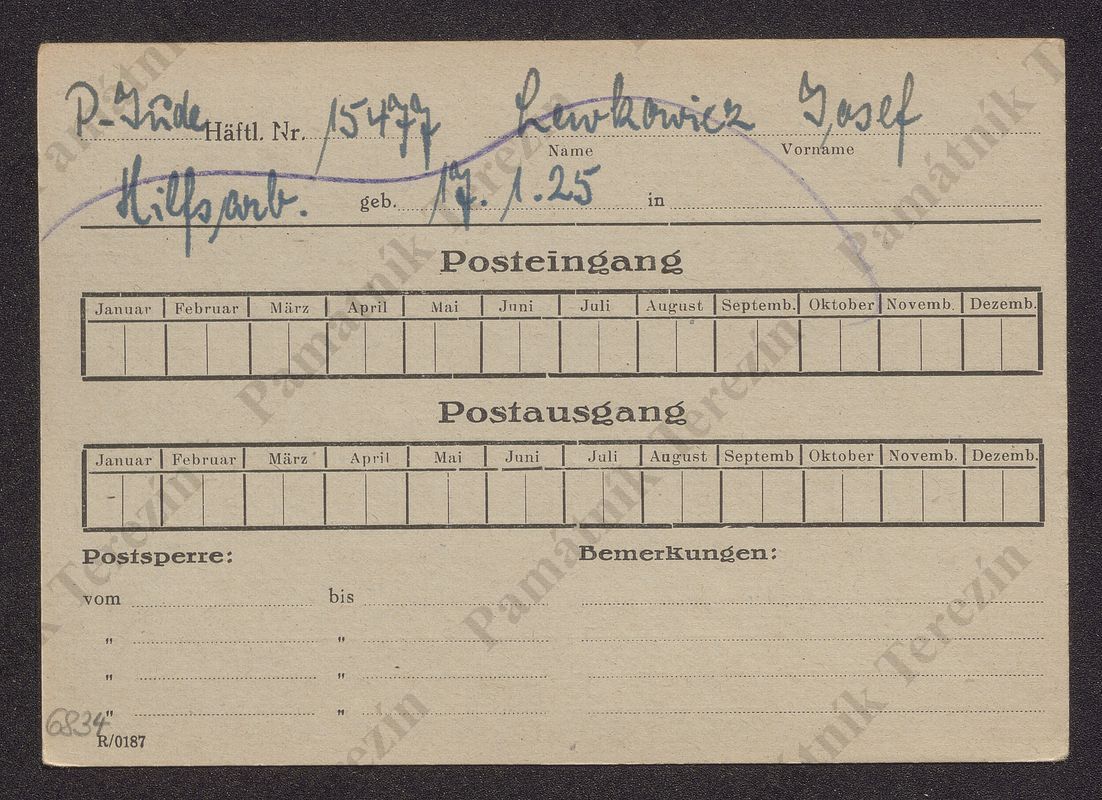 P-Jude Häftl. Nr. 15477 Lewkowicz Josef
Name Vorname
Hilfsarb. geb. 17. 1. 25 in
Posteingang
Januar Februar März April Mai Juni Juli August Septemb. Oktober Novemb. Dezemb.
Postausgang
Januar Februar März April Mai Juni Juli August Septemb Oktober Novemb. Dezemb.
Postsperre: Bemerkungen:
vom bis
" "
" "
" "
6834
R/0187
Památník Terezín